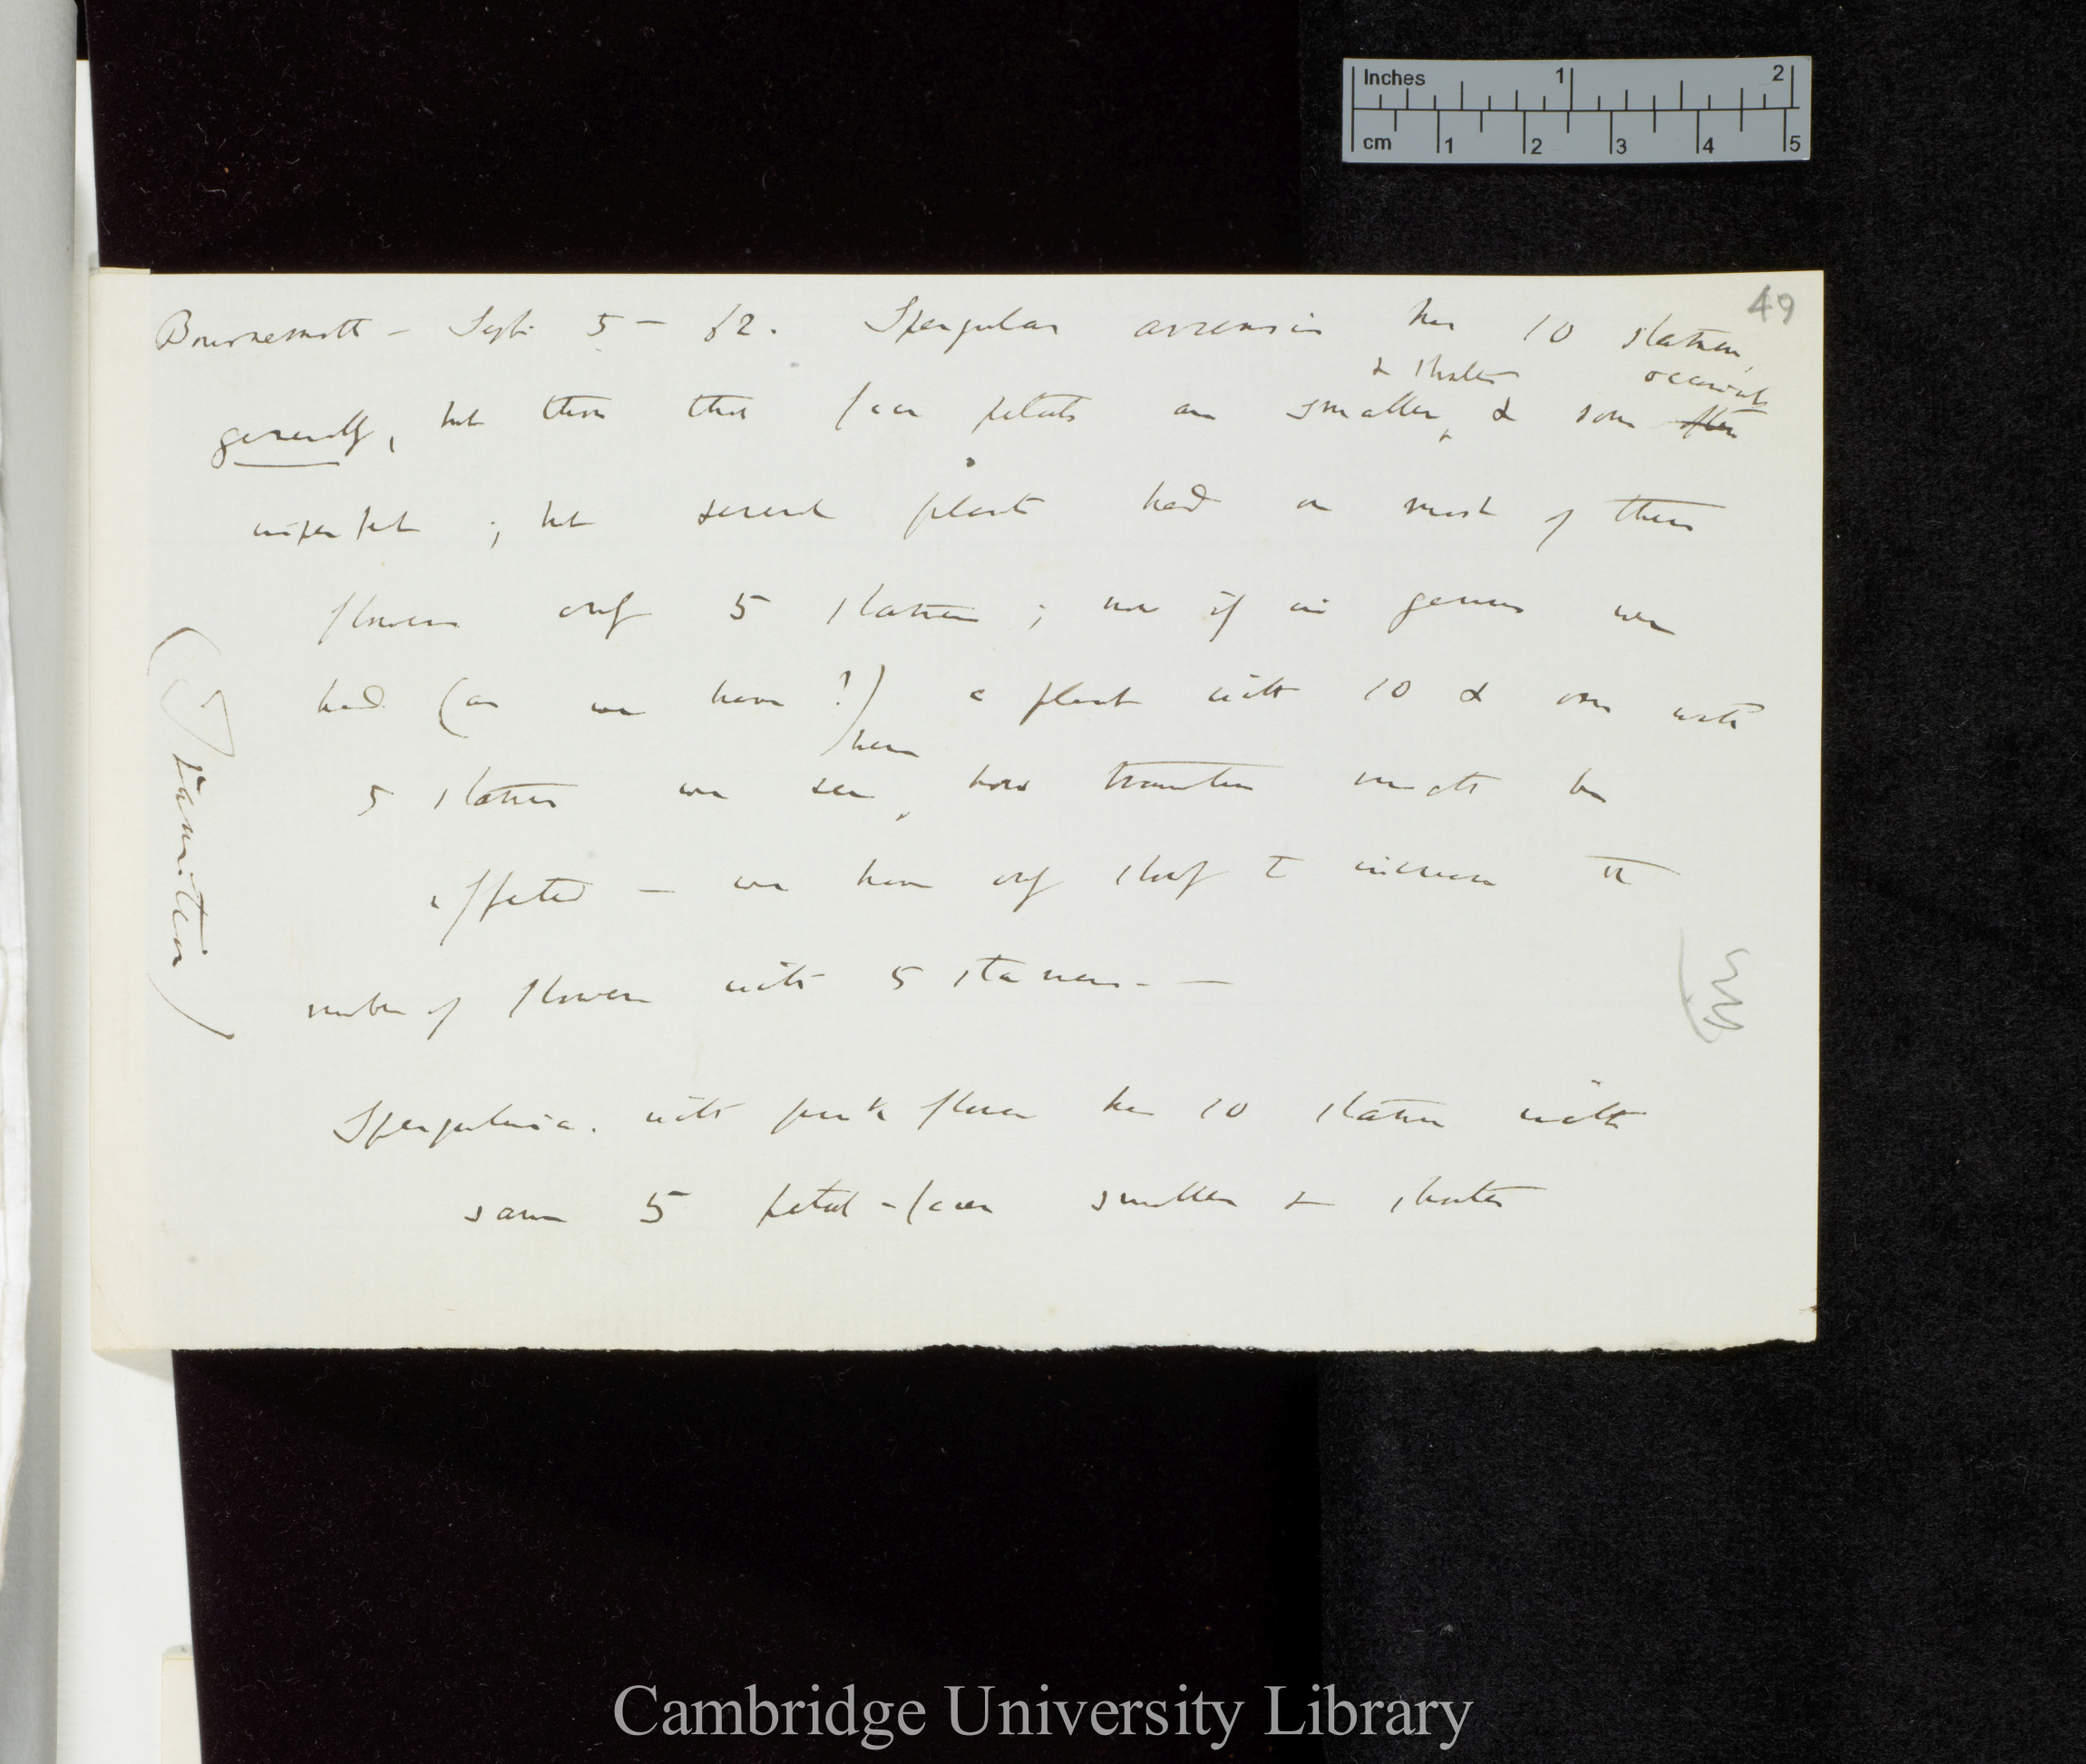 Inches 1 2
cm 1 2 3 4 5
49
Bournemouth – Sept. 5 – 62. Spergular arvensis has 10 stamens,
& shorter occasionally
generally, but those that face petals are smaller, & some often
imperfect; but several plants had on most of their
flowers only 5 stamens; now if in genus we
had (as we have?) a plant with 10 & one with
here
5 stamens we see, how transition might be
effected — we have only slowly to increase the
number of flowers with 5 stamens. —
(Transition)
Spergularia. with pink flower has 10 stamens with
same 5 petal-facers smaller & shorter
Cambridge University Library